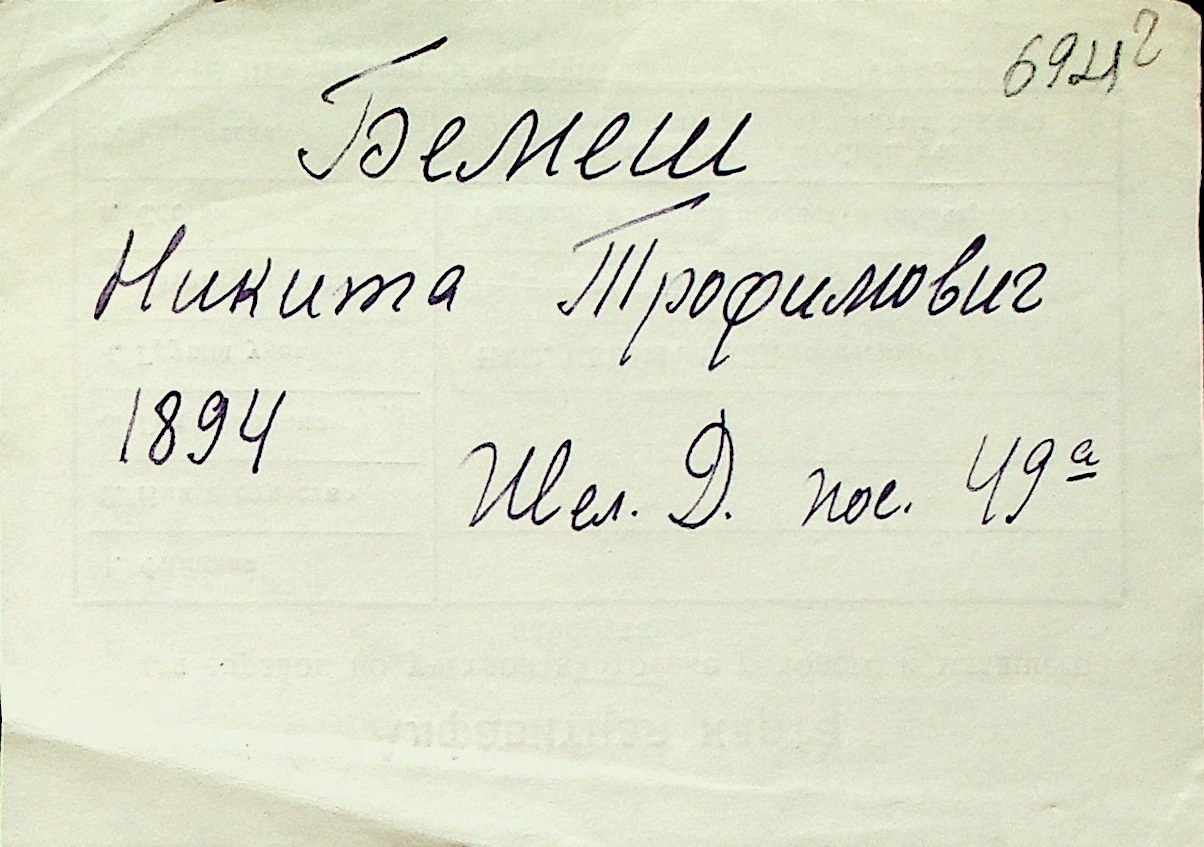 Бемеш
Никита Трофимович
1894
Жел. Д. пос. 49а